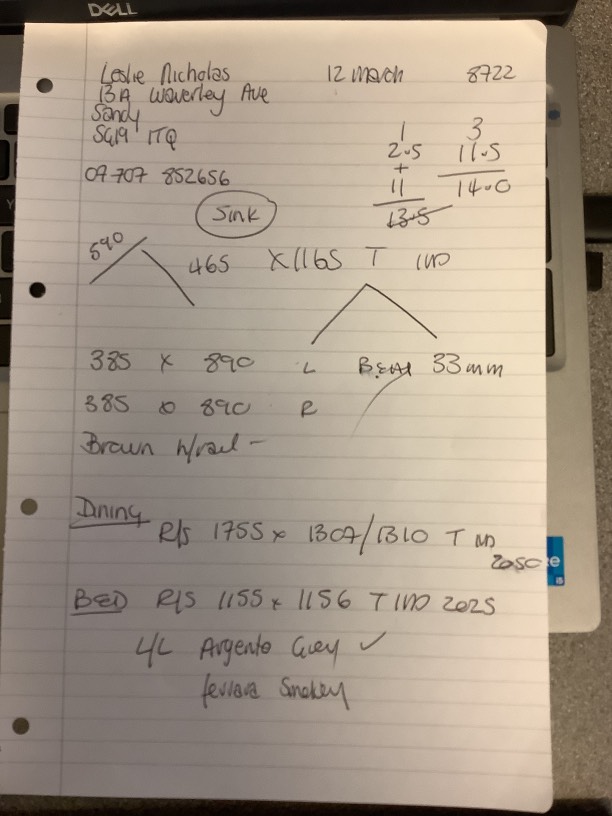 DELL
Leslie Nicholas 12 March 8722
13A Waverley Ave
Sandy
SG19 1TQ
1 3
2.5 11.5
+
11 14.0
13.5
07707 852656
Sink
590
465 X 1165 T IND
385 x 890 L 33mm
385 x 890 R
Brown h/rail -
Dining
R/S 1755 x 1307/1310 T IND
2050
BED R/S 1155 x 1156 T IND 2025
L/L Argento Grey ✓
Ferrara Smokey